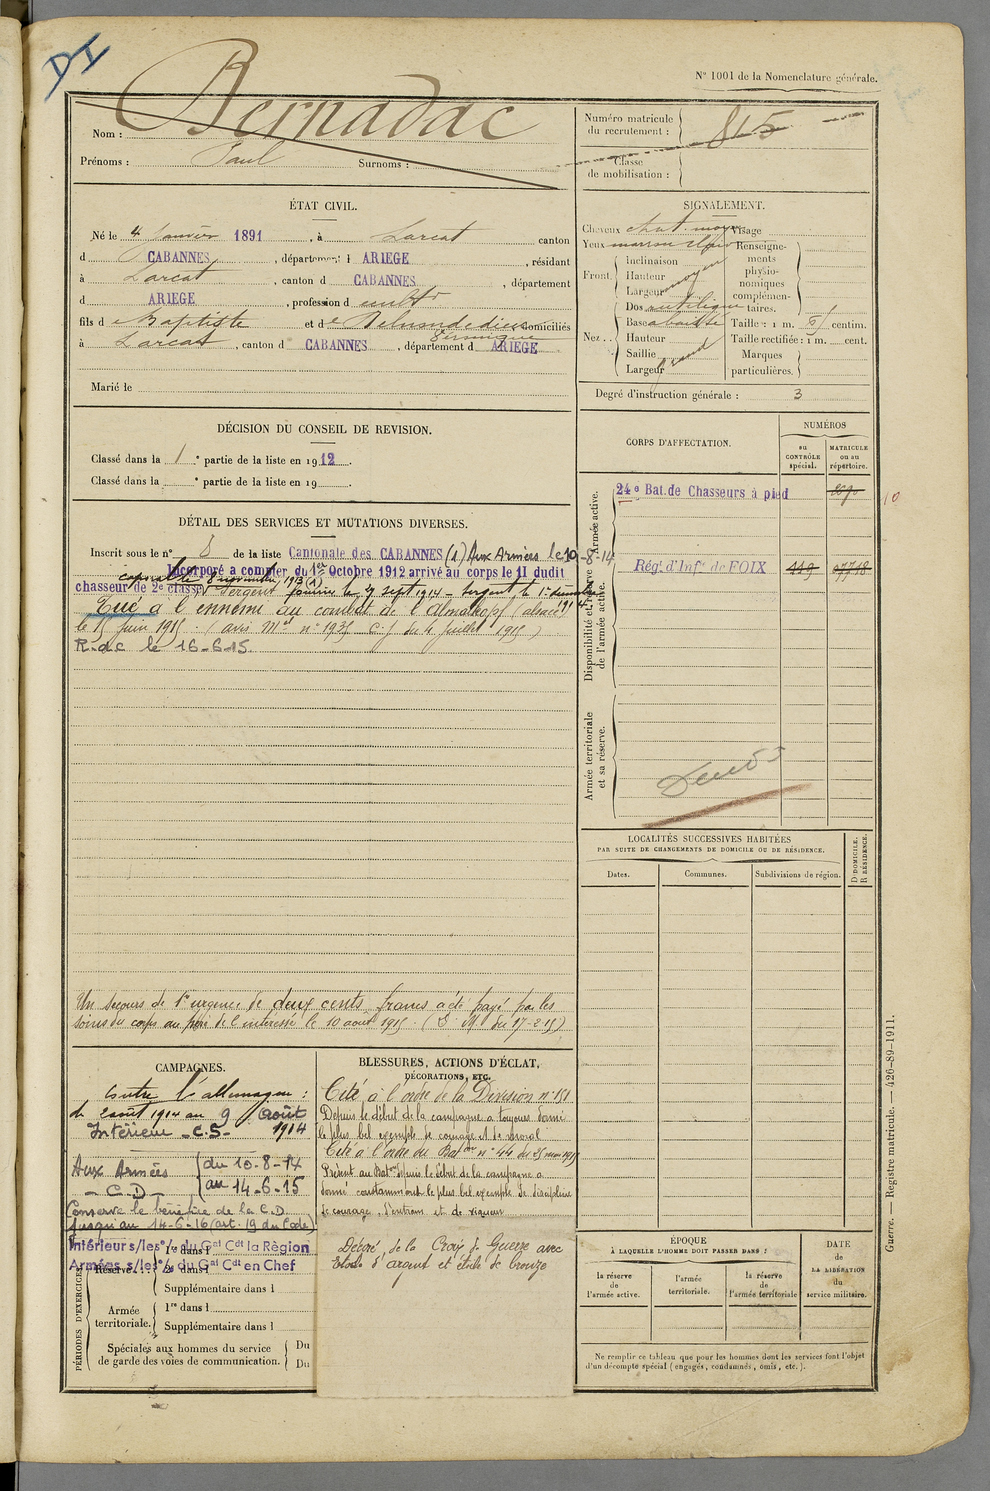 DI
N° 1001 de la Nomenclature générale.
Nom : Bernadac
Prénoms : Paul Surnoms :
Numéro matricule du recrutement : 815
Classe de mobilisation :
ÉTAT CIVIL.
Né le 4 Janvier 1891, à Larcat canton
d CABANNES, département d ARIEGE, résidant
à Larcat, canton d CABANNES, département
d ARIEGE, profession d
fils de Baptiste et de domiciliés
à Larcat, canton d CABANNES, département d ARIEGE
Marié le
SIGNALEMENT.
Cheveux chat. moyen Visage
Yeux marron Renseigne-
ments
physio-
nomiques
complémen-
taires.
Front. Inclinaison
Hauteur moyen
Largeur
Nez.. Dos rectiligne
Base abaissée Taille : 1 m. 61 centim.
Hauteur Taille rectifiée : 1 m. cent.
Saillie Marques
Largeur grand particulières.
Degré d'instruction générale : 3
DÉCISION DU CONSEIL DE REVISION.
Classé dans la 1re partie de la liste en 1912.
Classé dans la e partie de la liste en 19 .
DÉTAIL DES SERVICES ET MUTATIONS DIVERSES.
Inscrit sous le n° 8 de la liste Cantonale des CABANNES (1) Aux Armées le 10-8-14
Incorporé a compter du 1er Octobre 1912 arrivé au corps le 11 dudit
caporal le 8 novembre 1913 (1)
chasseur de 2e classe Sergent fourrier le 27 sept 1914 - Sergent le 1er décembre 1914
Tué à l'ennemi au combat de l'Almatkopf (alsace)
le 15 juin 1915. (avis Mel n° 1935 C.J du 4 juillet 1915)
R.d.c le 16-6-15.
Un secours de 1re urgence de deux cents francs a été payé par les
soins du corps au père de l'intéressé le 10 août 1915. (D.M du 17-2-15)
CORPS D'AFFECTATION.
NUMÉROS
au CONTRÔLE spécial.
MATRICULE ou au répertoire.
Armée active.
24e Bat. de Chasseurs à pied
10
Disponibilité et réserve de l'armée active.
Rég.t d'Inf.ie de FOIX 449
Armée territoriale et sa réserve.
Décédé
LOCALITÉS SUCCESSIVES HABITÉES
PAR SUITE DE CHANGEMENTS DE DOMICILE OU DE RÉSIDENCE.
Dates. Communes. Subdivisions de région. D. DOMICILE. R. RÉSIDENCE.
CAMPAGNES.
Contre l'allemagne :
du 2 août 1914 au 9 Août 1914
Intérieur - C.S -
Aux Armées du 10-8-14
- C.D - au 14-6-15
Conserve le bénéfice de la C.D
Jusqu'au 14-6-16 (art. 19 du Code)
Intérieur s/les o/ du Gal Cdt la Région
Armées s/les o/ du Gal Cdt en Chef
PÉRIODES D'EXERCICES
Réserve... 1re dans l
2e dans l
Supplémentaire dans l
Armée territoriale. 1re dans l
Supplémentaire dans l
Spéciales aux hommes du service de garde des voies de communication. Du
Du
BLESSURES, ACTIONS D'ÉCLAT,
DÉCORATIONS, ETC.
Cité à l'ordre de la Division n° 151
Depuis le début de la campagne a toujours donné
le plus bel exemple de courage et de moral
Cité à l'ordre du Bat.on n° 44 du 25 mars 1915
Présent au Bat.on depuis le début de la campagne a
donné constamment le plus bel exemple de discipline
de courage, d'entrain et de vigueur
Décoré de la Croix de Guerre avec
étoile d'argent et étoile de bronze
ÉPOQUE
À LAQUELLE L'HOMME DOIT PASSER DANS :
la réserve de l'armée active. l'armée territoriale. la réserve de l'armée territoriale
DATE de LA LIBÉRATION du service militaire.
Ne remplir ce tableau que pour les hommes dont les services font l'objet
d'un décompte spécial (engagés, condamnés, omis, etc.).
Guerre. — Registre matricule. — 426-89-1911.